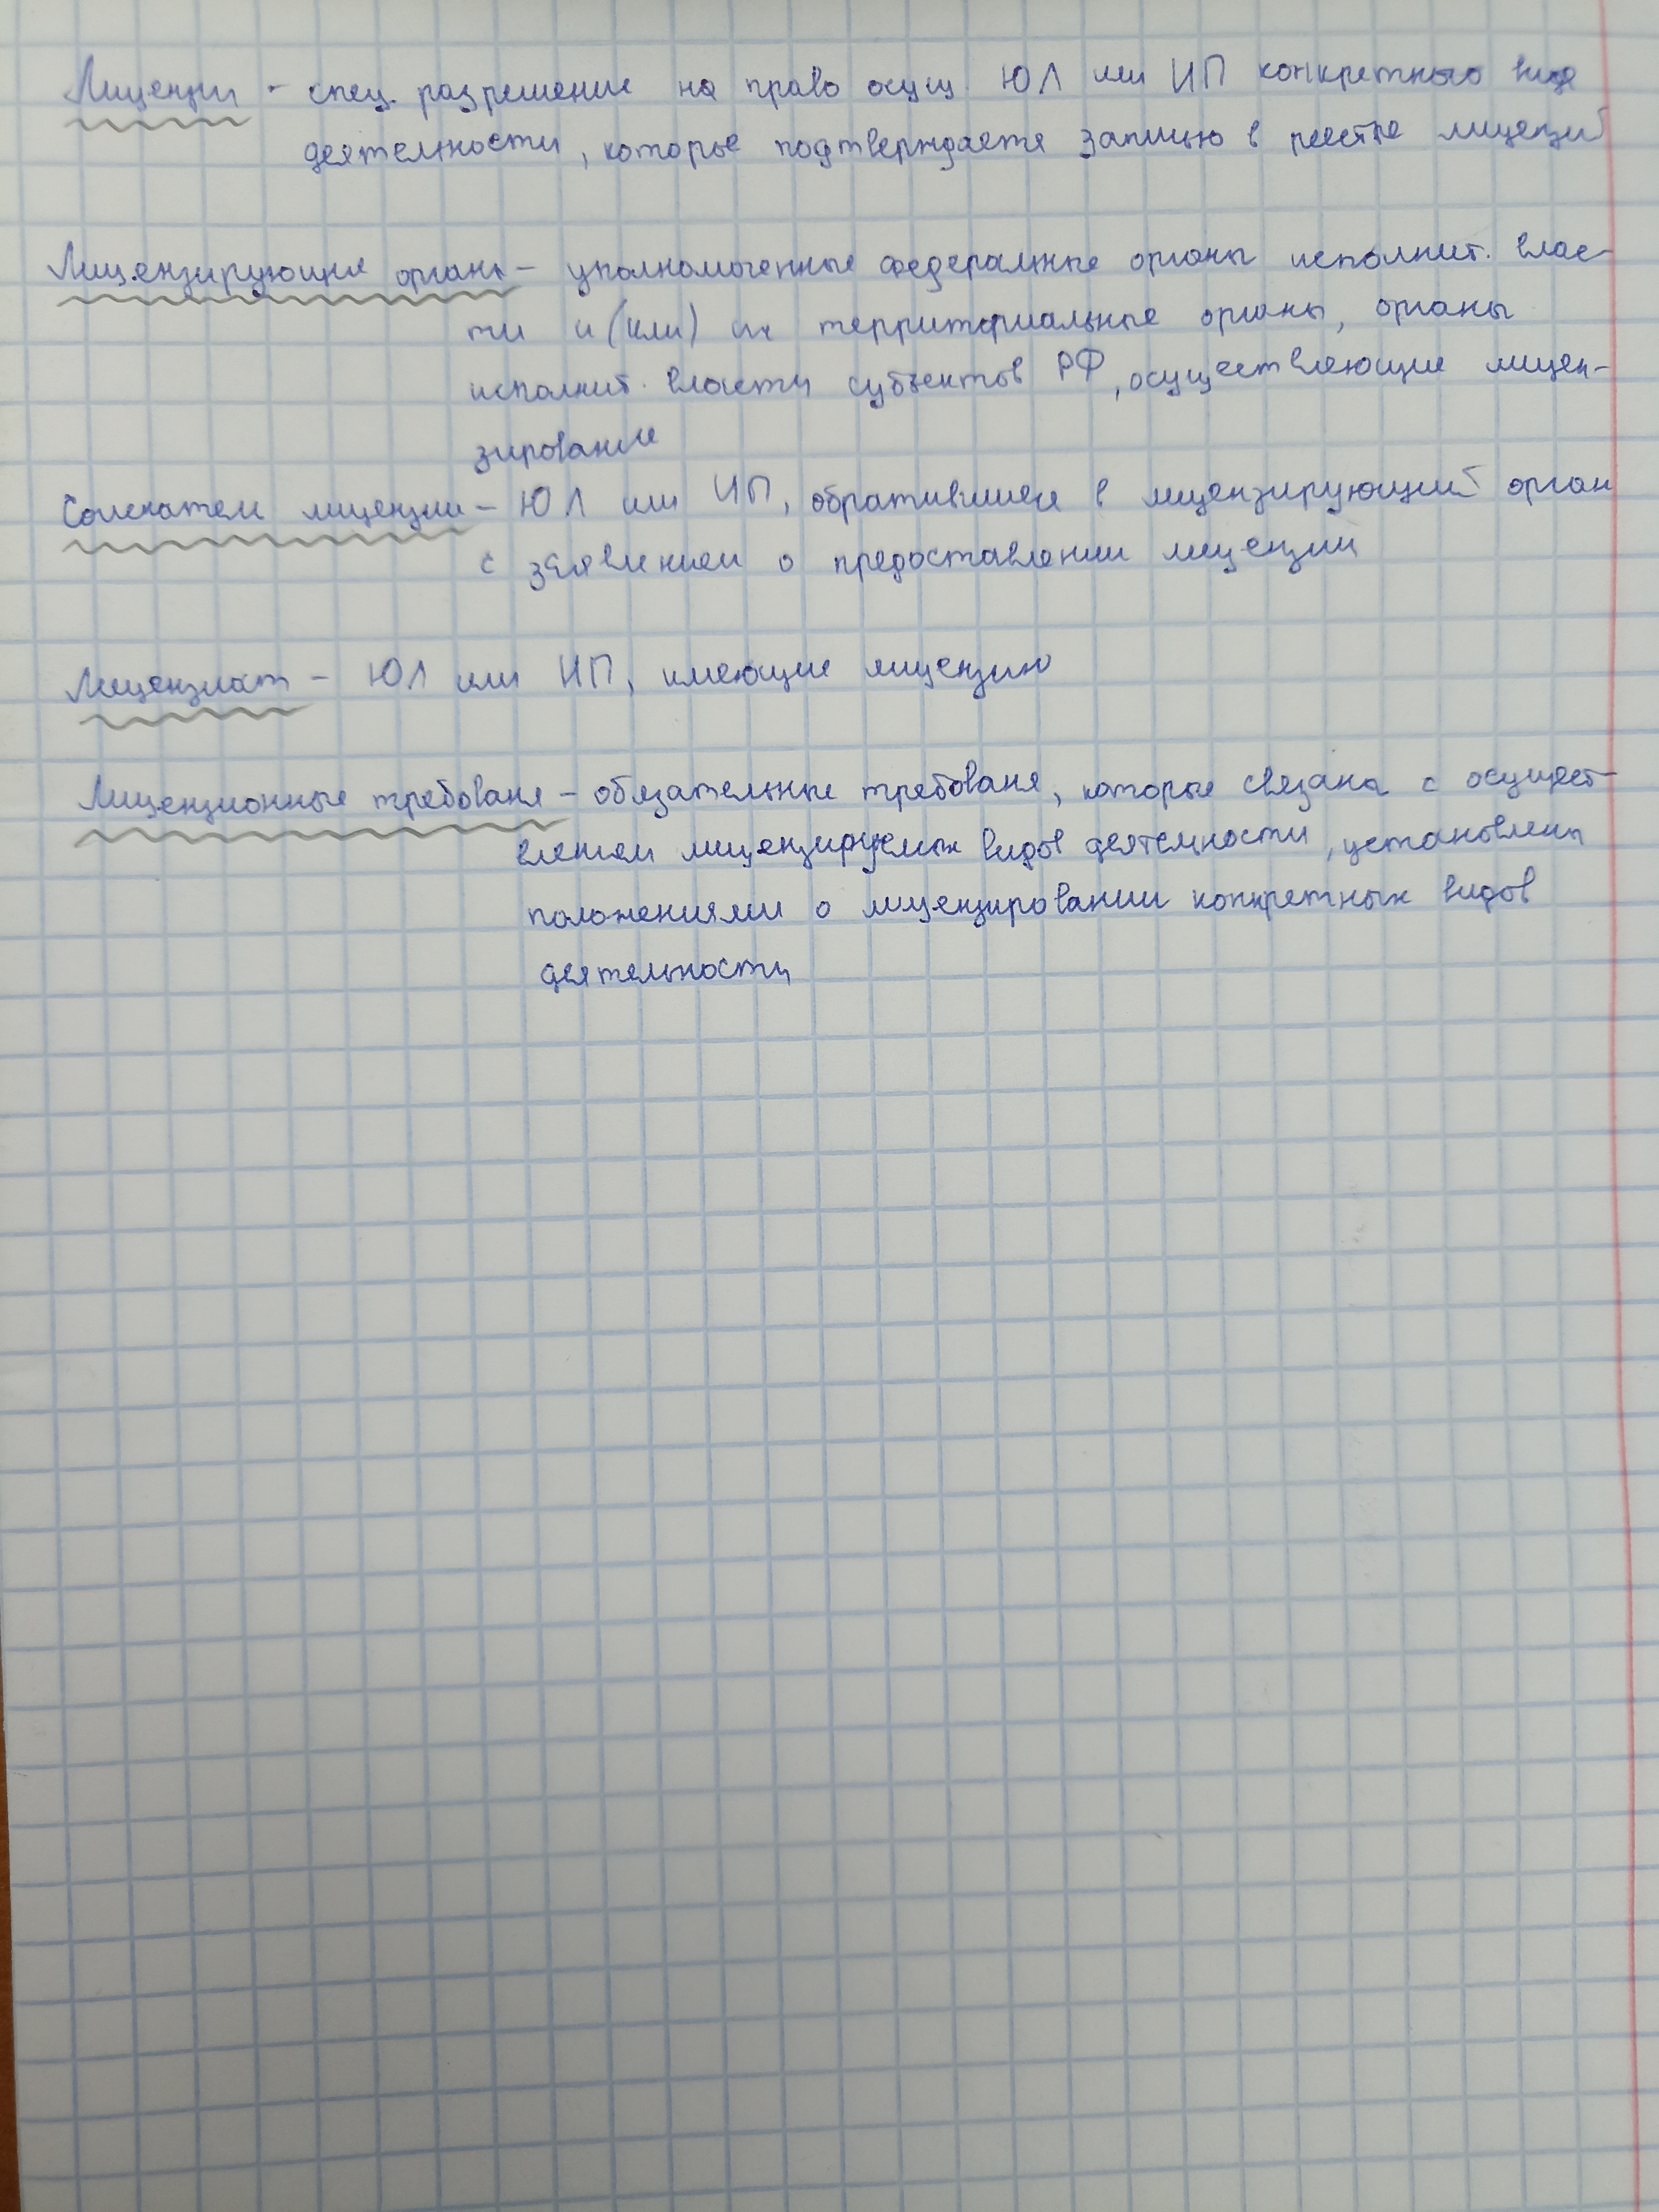 Лицензии - спец. разрешение на право осущ. ЮЛ или ИП конкретного вида
деятельности, которые подтверждается записью в реестре лицензий
Лицензирующие органы - уполномоченные федеральные органы исполнит. влас-
ти и (или) их территориальные органы, органы
исполнит. власти субъектов РФ, осуществляющие лицен-
зирование
Соискатели лицензии - ЮЛ или ИП, обратившиеся в лицензирующий орган
с заявлением о предоставлении лицензии
Лицензиат - ЮЛ или ИП, имеющие лицензию
Лицензионные требованя - обязательные требованя, которые связана с осущест-
влением лицензируемых видов деятельности, установлены
положениями о лицензировании конкретных видов
деятельности